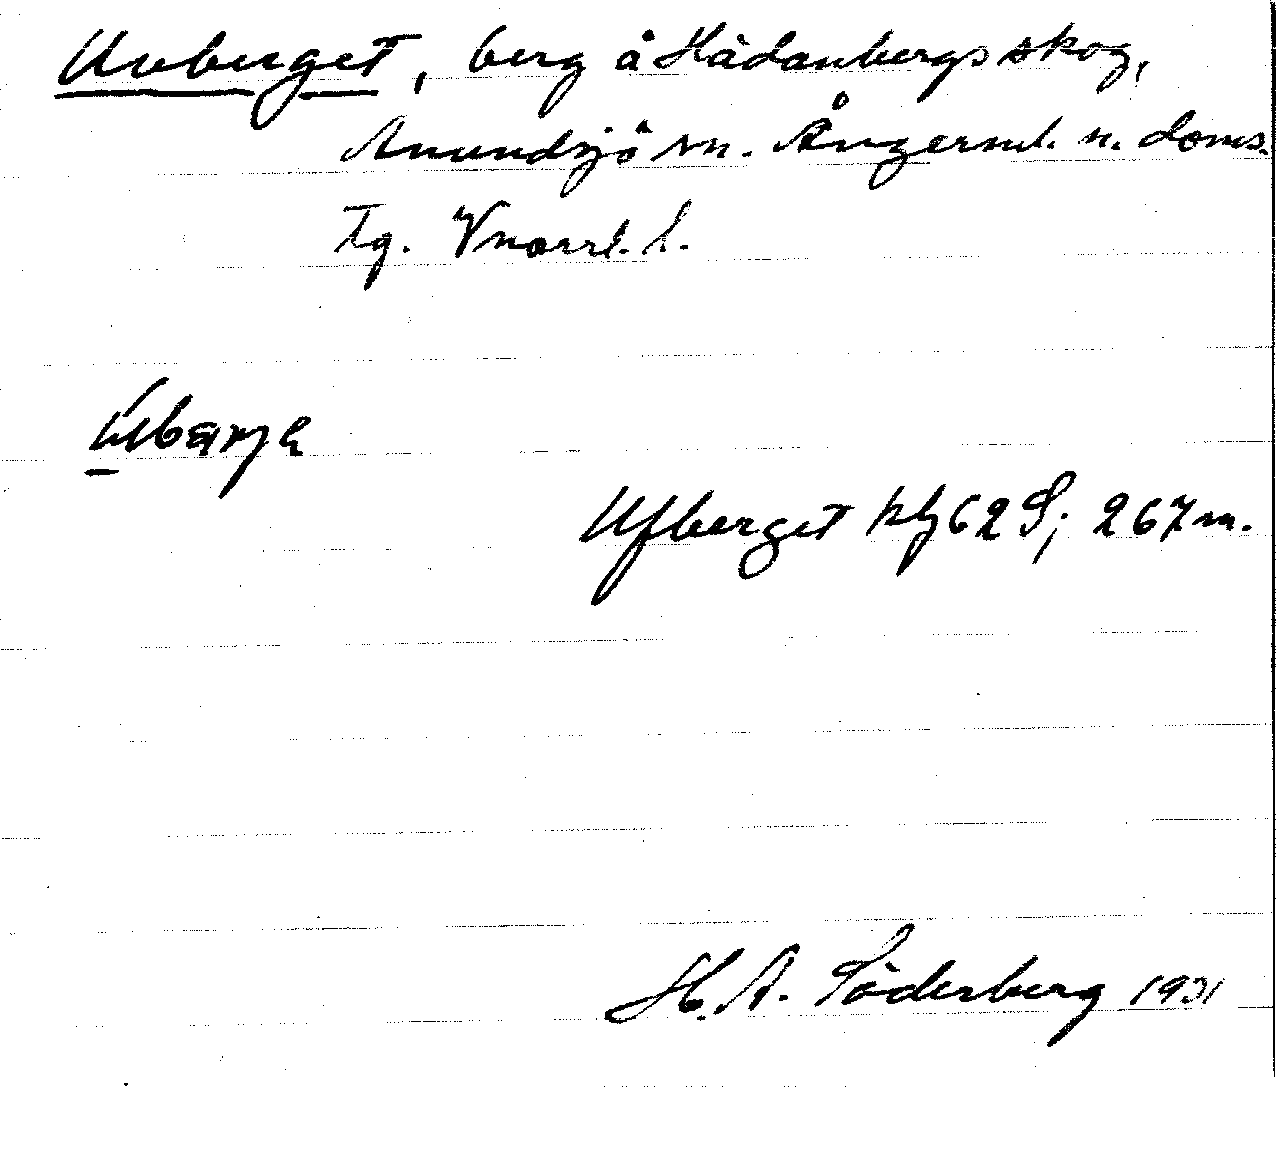 Uvberget, berg å Hädanbergs skog,
Anundsjö sn. Ångerml. n. doms.
Tg. Vnorrl. l.
Úbærje
Ufberget kbl 62 S; 267 m.
H. A. Söderberg 1931